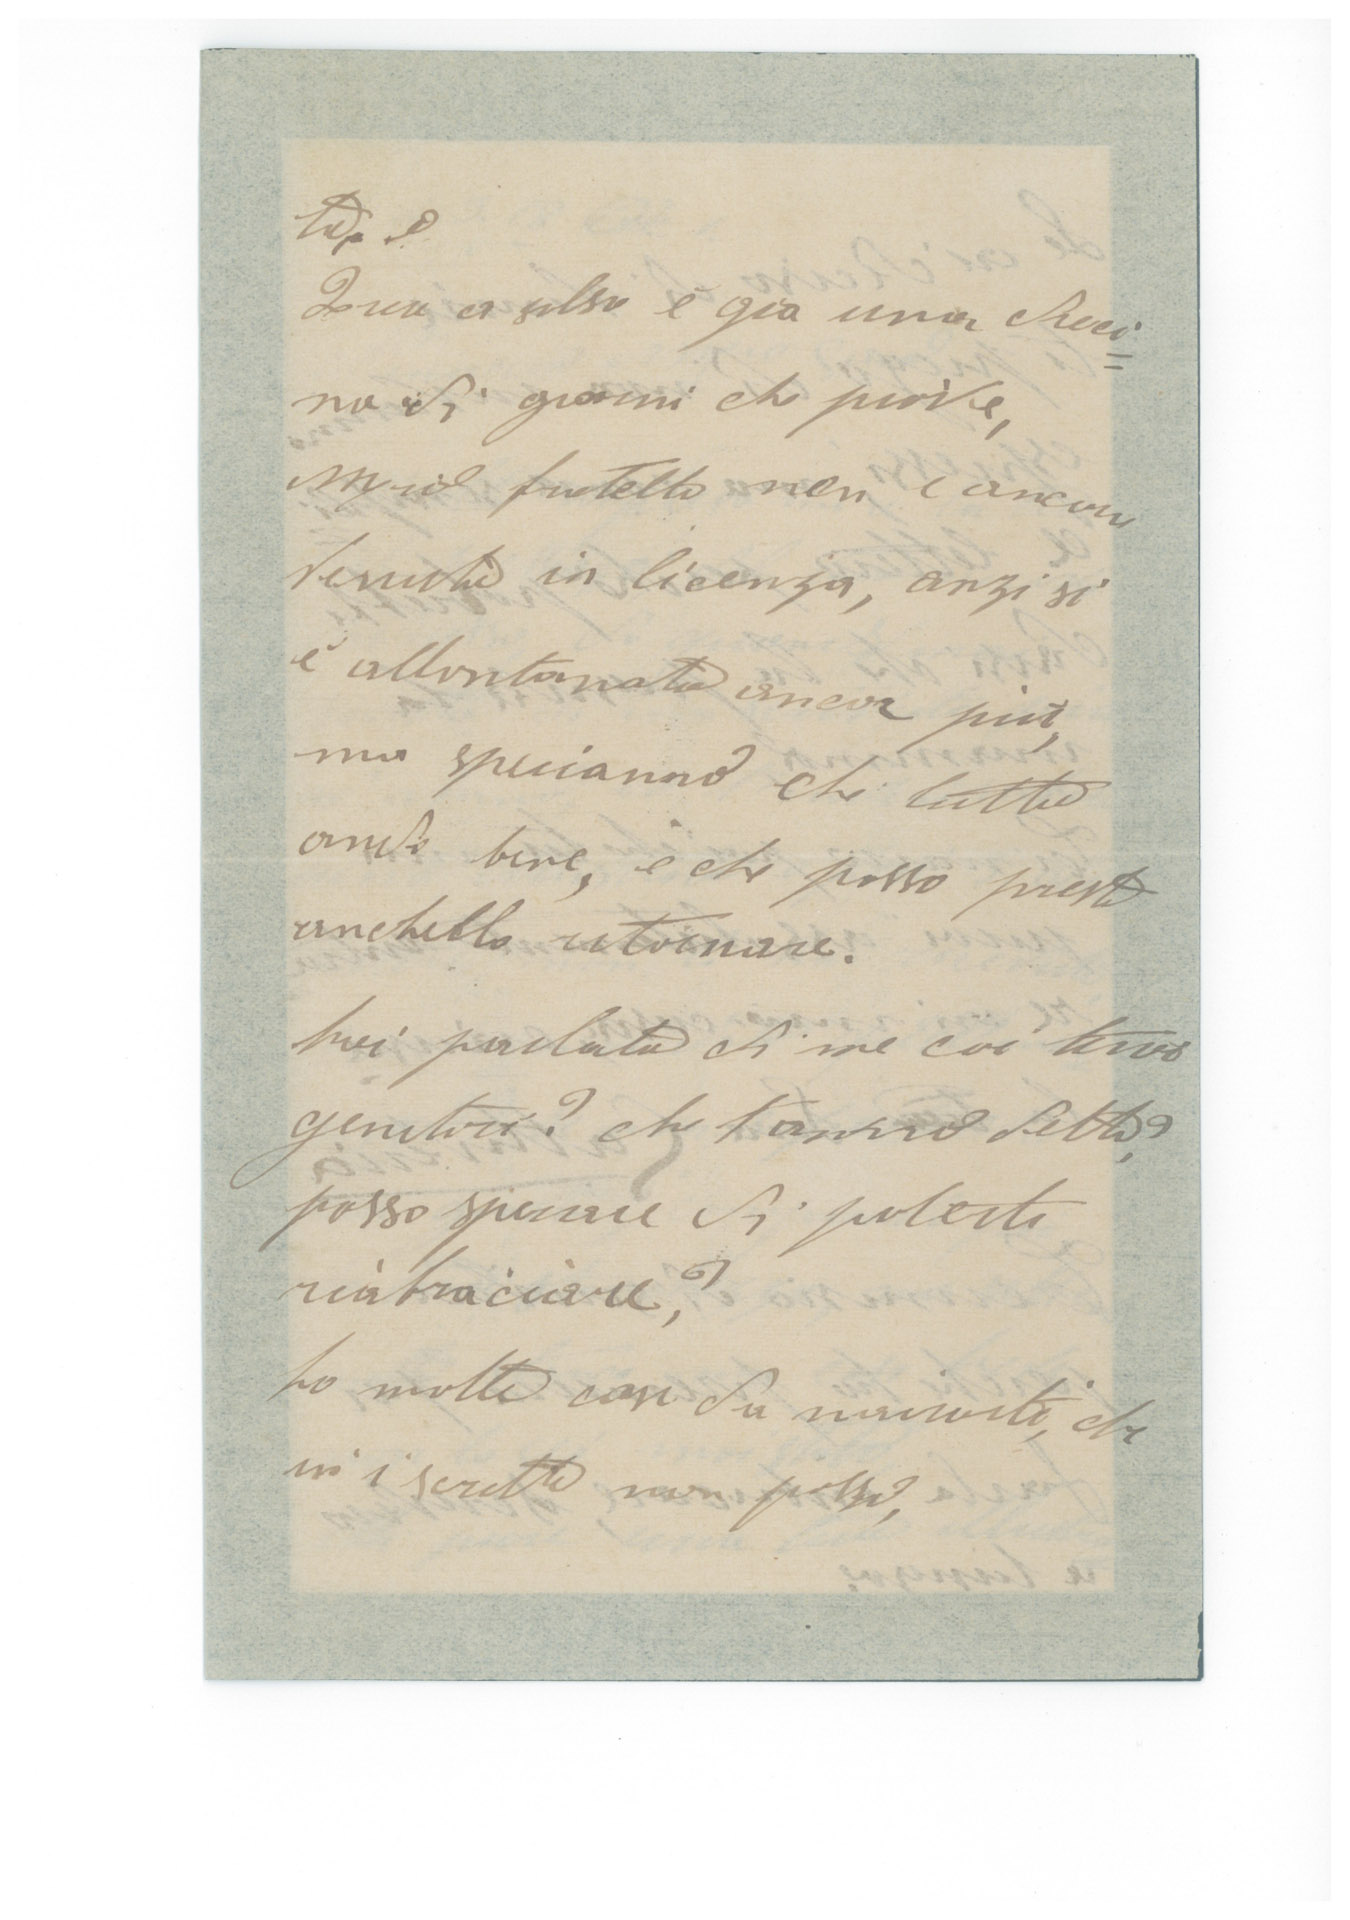 tà, e
Qua a è già una dieci=
na di giorni che piove,
Mio fratello non è ancora
venuto in licenza, anzi si
è allontanato ancor più,
ma speriamo che tutto
andrà bene, e che posso presto
anchello ritornare.
hai parlato di me coi tuoi
genitori? che t'anno detto,?
posso sperare di poterti
riabraciare,?
ho molte cose da narrarti, che
in iscritto non posso,